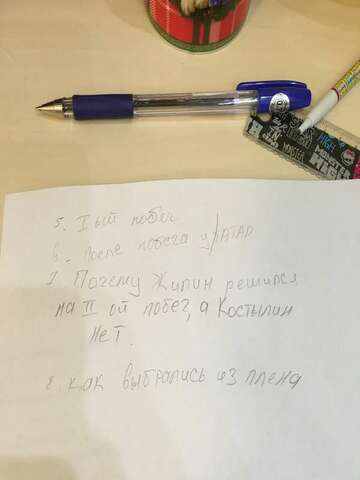 5. I ый побег
6. После побега у татар
7. Почему Жилин решился
на II ой побег, а Костылин
нет.
8. как выбрались из плена
MONSTER
HIGH
MONSTER
HIGH